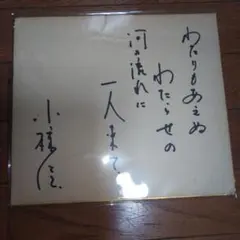 わたりもあえぬ
わたらせの
河の流れに
一人来て
小椋佳